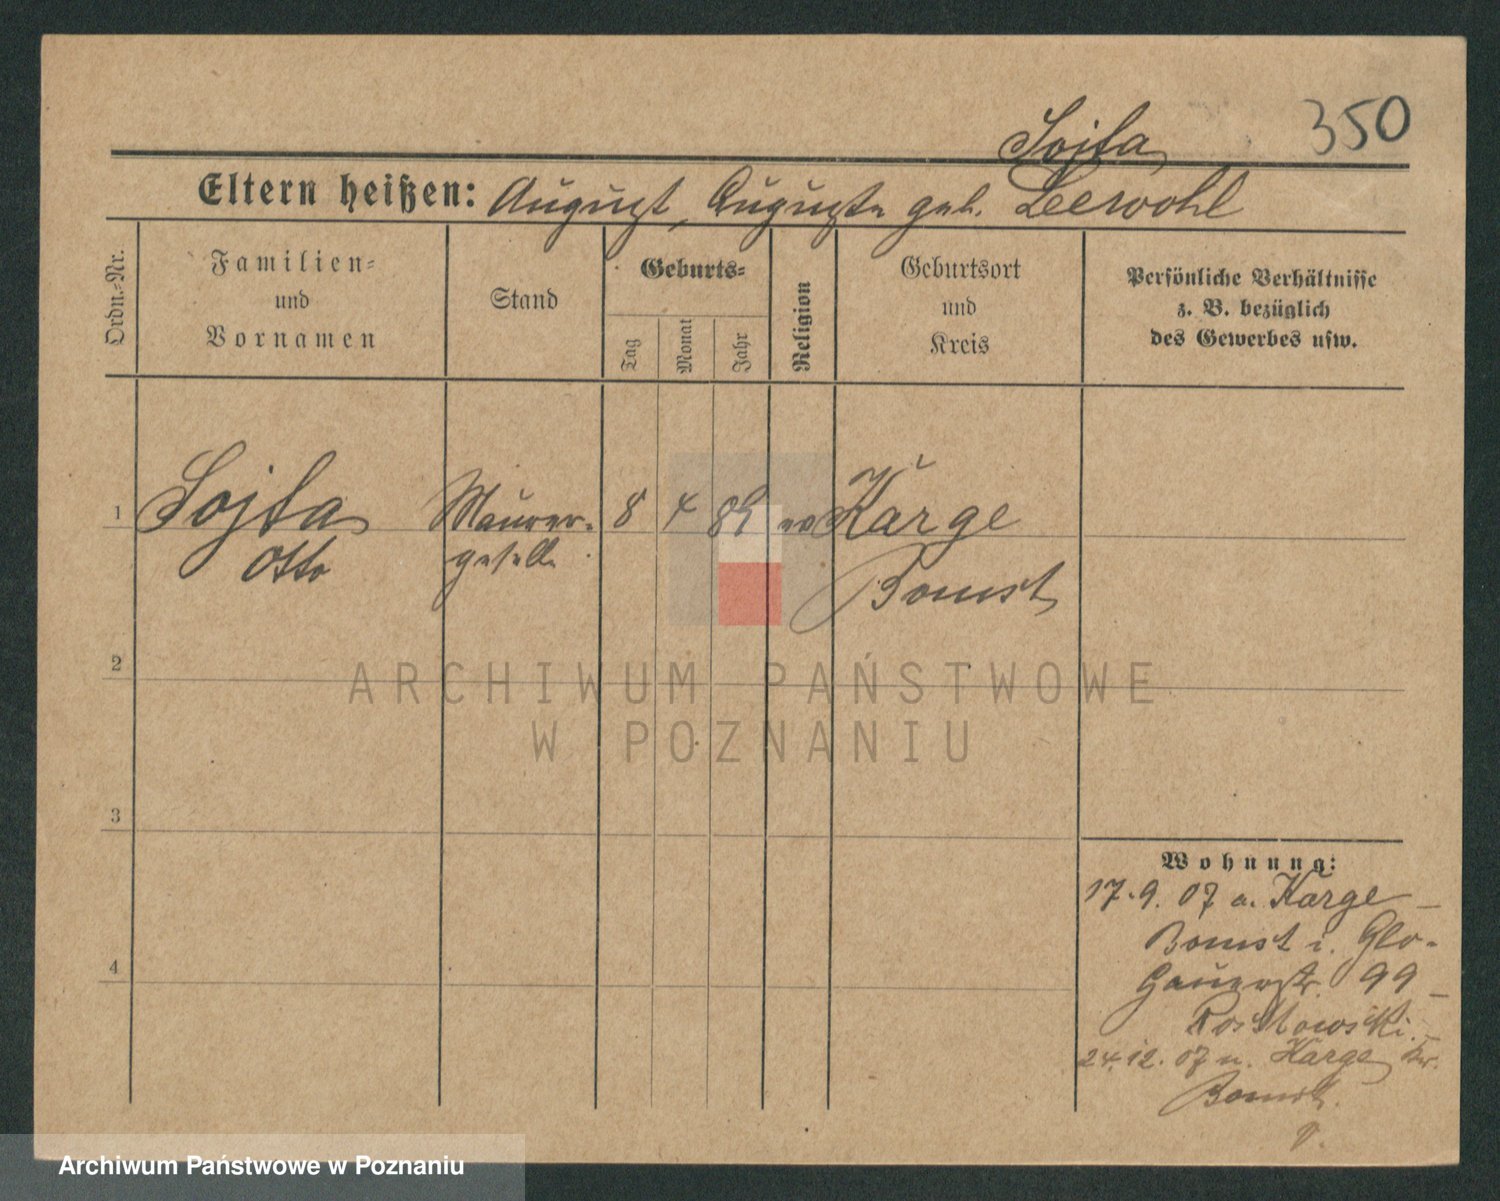 350
Sojka
Eltern heißen: August, Auguste geb. Leewohl
Ordn.-Nr.
Familien-
und
Vornamen
Stand
Geburts-
Tag
Monat
Jahr
Religion
Geburtsort
und
Kreis
Persönliche Verhältnisse
z. B. bezüglich
des Gewerbes usw.
1 Sojka Maurer- 8 4 89 ev Karge
Otto geselle Bomst
2
3
4
ARCHIWUM PAŃSTWOWE
W POZNANIU
Wohnung:
17.9.07 a. Karge –
Bomst i. Glo-
Gauerstr. 99 –
24.12.07 n. Karge Kr.
Bomst.
Archiwum Państwowe w Poznaniu